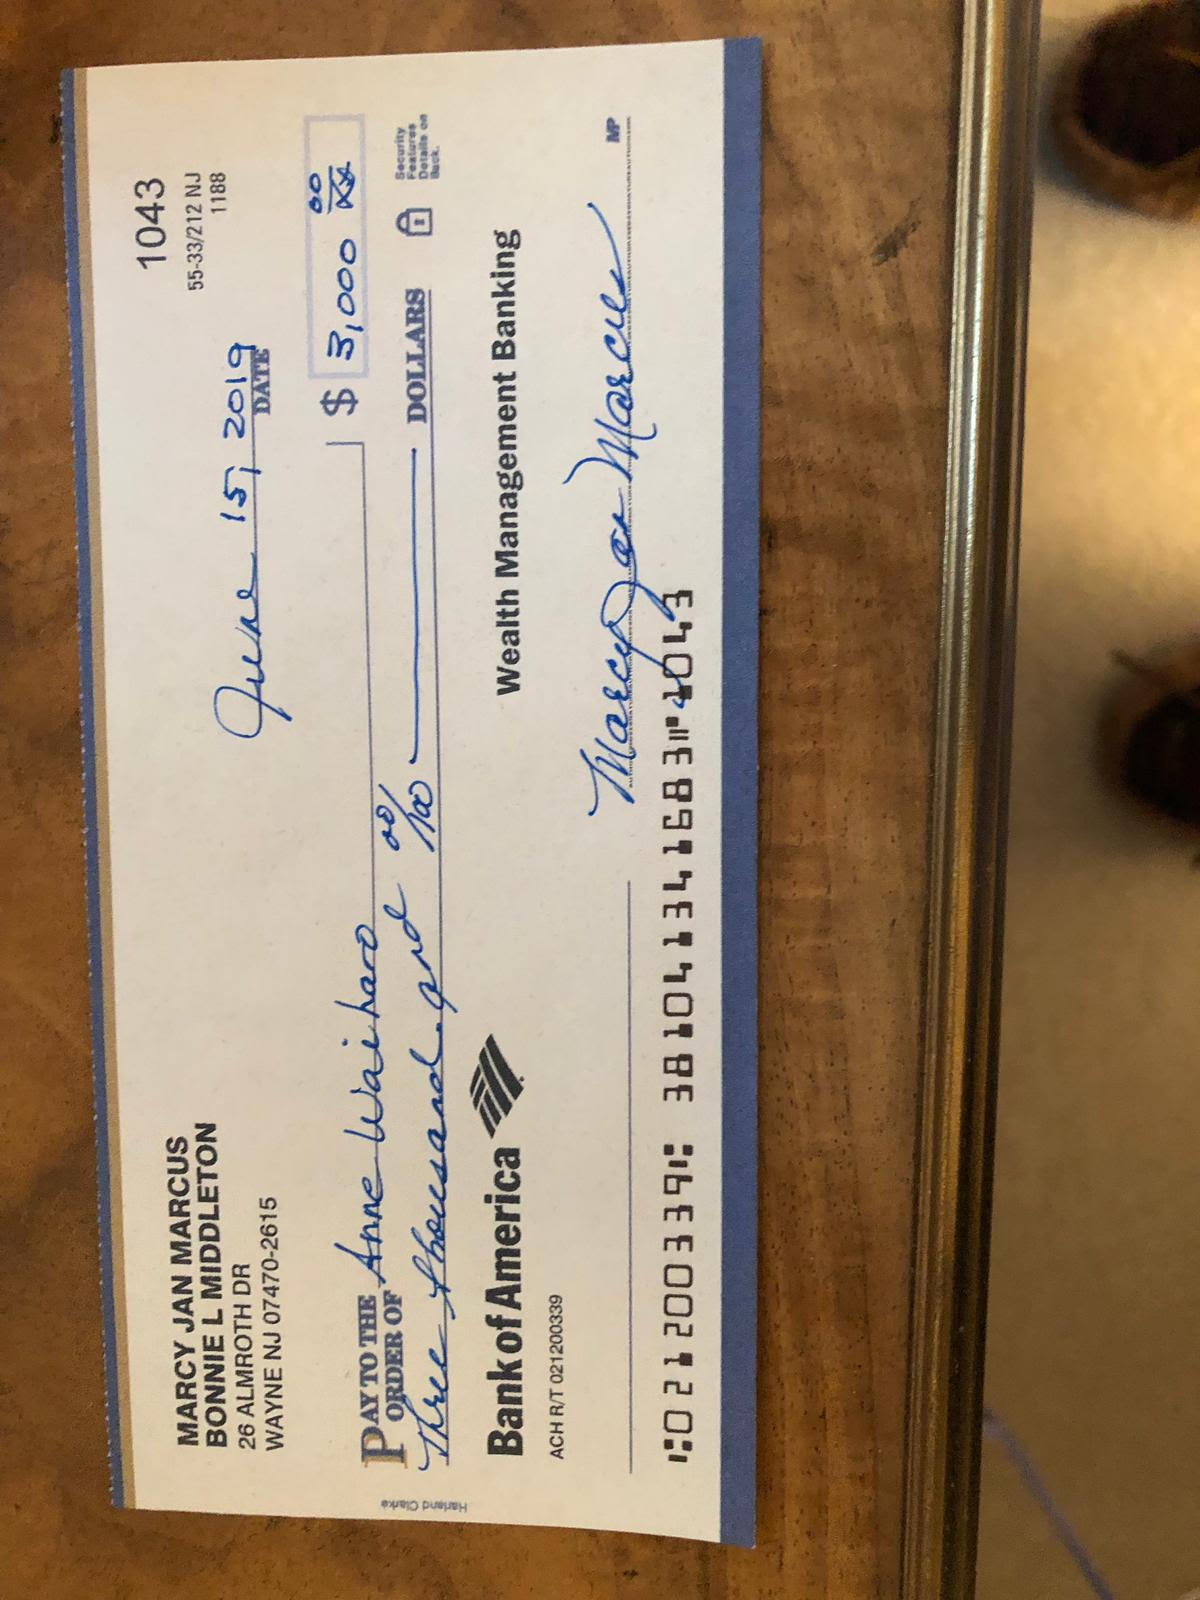 MARCY JAN MARCUS
BONNIE L MIDDLETON
26 ALMROTH DR
WAYNE NJ 07470-2615
1043
55-33/212 NJ
1188
June 15, 2019
DATE
PAY TO THE ORDER OF Anne Waiharo $ 3,000 00/XX
Three thousand and 00/100 DOLLARS
Security
Features
Details on
Back.
Harland Clarke
Bank of America
Wealth Management Banking
ACH R/T 021200339
Marcy Jan Marcus
MP
⑆021200339⑆ 381041341683⑈1043